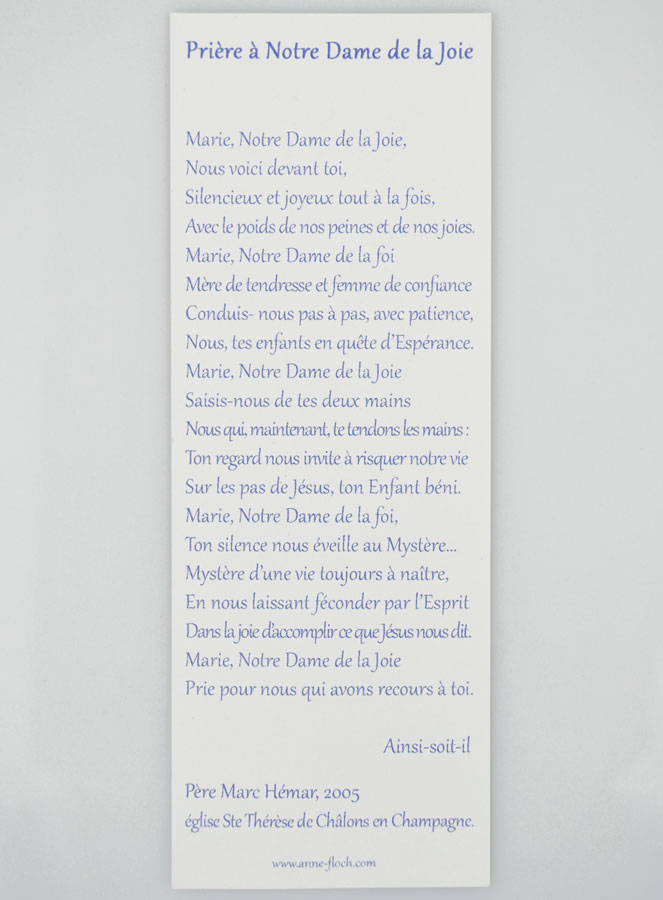 Prière à Notre Dame de la Joie
Marie, Notre Dame de la Joie,
Nous voici devant toi,
Silencieux et joyeux tout à la fois,
Avec le poids de nos peines et de nos joies.
Marie, Notre Dame de la foi
Mère de tendresse et femme de confiance
Conduis- nous pas à pas, avec patience,
Nous, tes enfants en quête d'Espérance.
Marie, Notre Dame de la Joie
Saisis-nous de tes deux mains
Nous qui, maintenant, te tendons les mains :
Ton regard nous invite à risquer notre vie
Sur les pas de Jésus, ton Enfant béni.
Marie, Notre Dame de la foi,
Ton silence nous éveille au Mystère...
Mystère d'une vie toujours à naître,
En nous laissant féconder par l'Esprit
Dans la joie d'accomplir ce que Jésus nous dit.
Marie, Notre Dame de la Joie
Prie pour nous qui avons recours à toi.
Ainsi-soit-il
Père Marc Hémar, 2005
église Ste Thérèse de Châlons en Champagne.
www.anne-floch.com